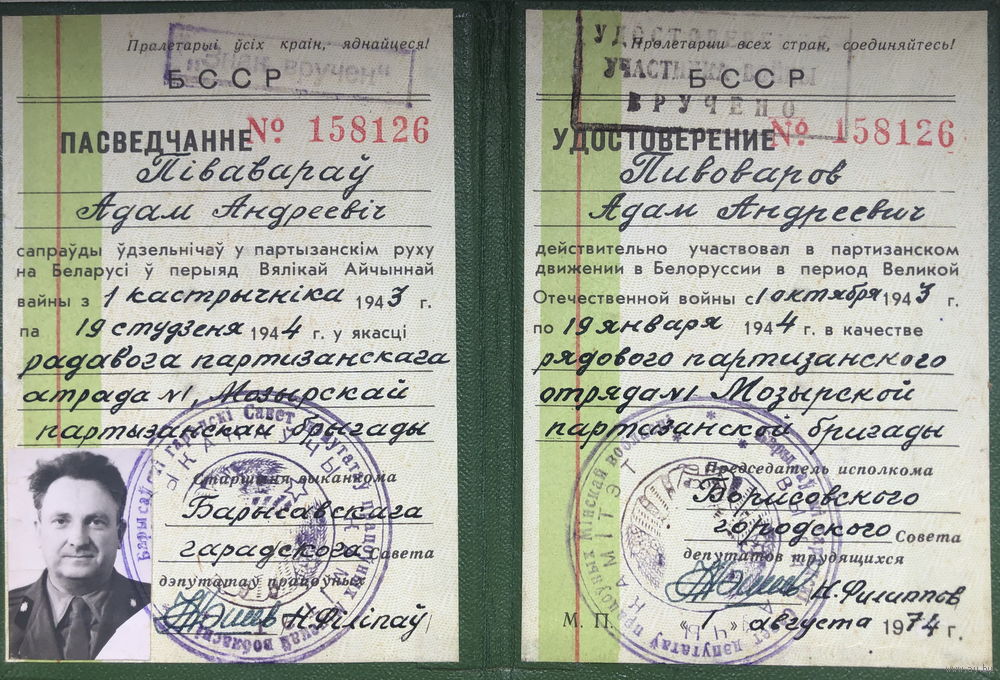 Пралетарыі ўсіх краін, яднайцеся!
БССР
ПАСВЕДЧАННЕ № 158126
Півавараў
Адам Андреевіч
сапраўды ўдзельнічаў у партызанскім руху
на Беларусі ў перыяд Вялікай Айчыннай
вайны з 1 кастрычніка 1943 г.
па 19 студзеня 1944 г. у якасці
радавога партизанскага
атрада №1, Мозырскай
партызанскай брыгады
Старшыня выканкома
Барысаўскага
гарадскога Савета
дэпутатаў працоўных
Н. Філіпаў
УДОСТОВЕРЕНИЕ
УЧАСТНИКА ВОЙНЫ
ВРУЧЕНО
Пролетарии всех стран, соединяйтесь!
БССР
УДОСТОВЕРЕНИЕ № 158126
Пивоваров
Адам Андреевич
действительно участвовал в партизанском
движении в Белоруссии в период Великой
Отечественной войны с 1 октября 1943 г.
по 19 января 1944 г. в качестве
рядового партизанского
отряда №1 Мозырской
партизанской бригады
Председатель исполкома
Борисовского
городского Совета
депутатов трудящихся
Н. Филиппов
М. П. «1» августа 1974 г.